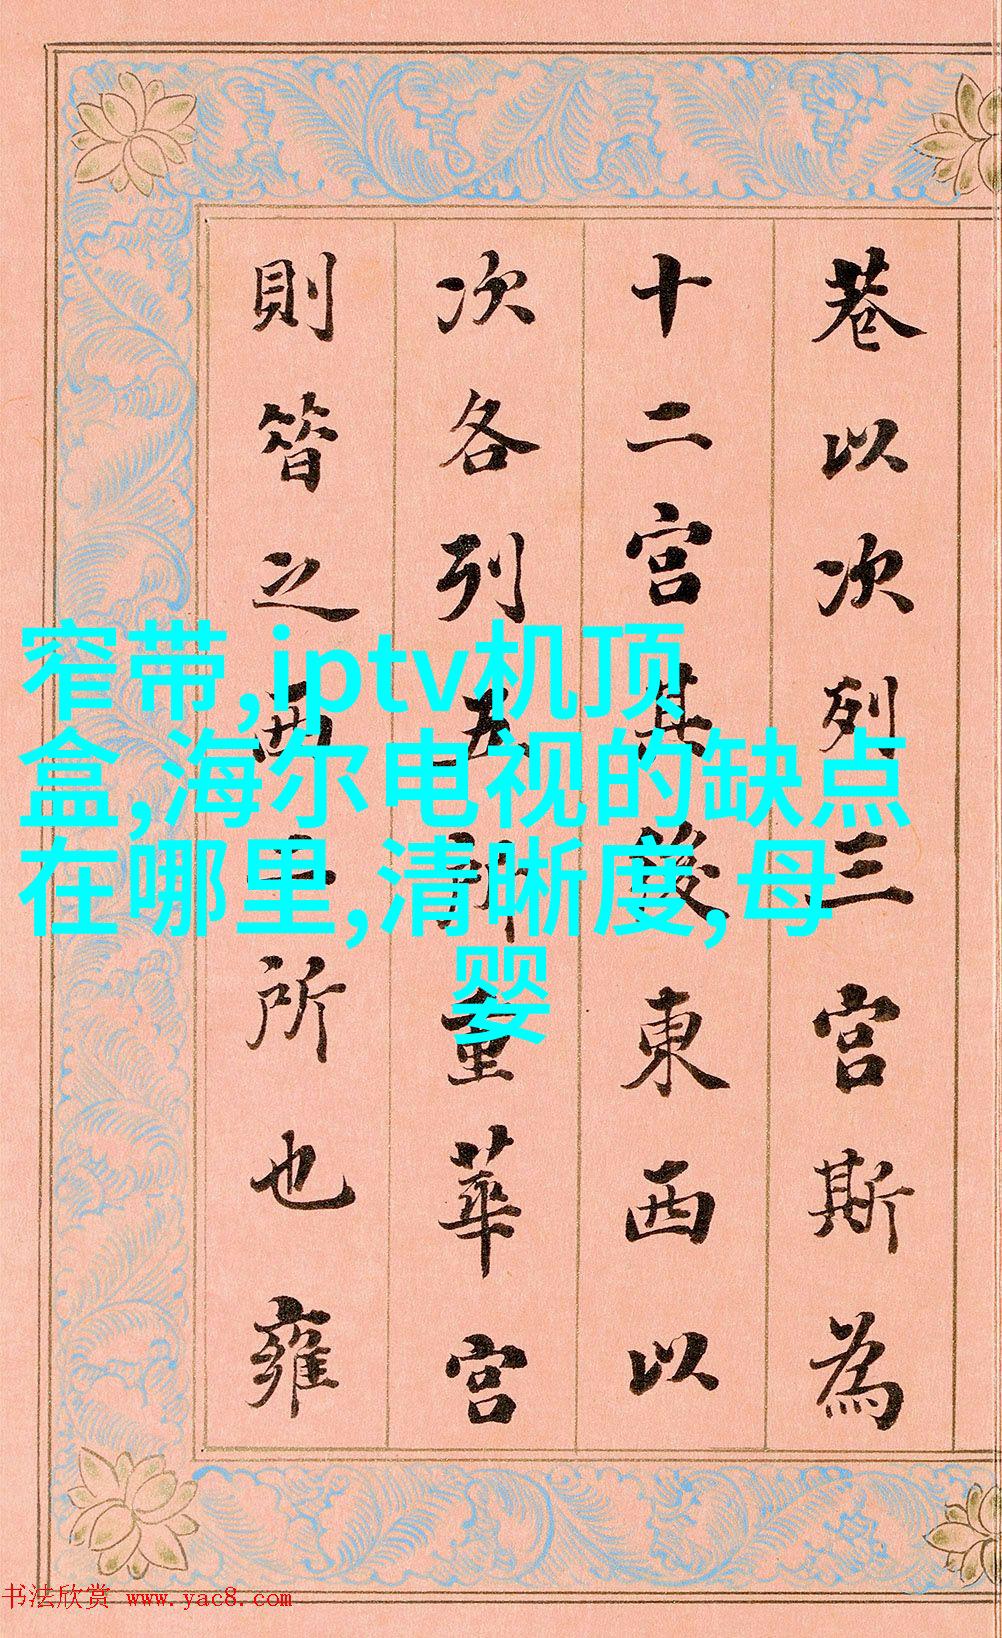 巷以次列三宮斯為
十二宮其後東西以
次各列五所重華宮
則昔之西二所也雍
窄带,iptv机顶
盒,海尔电视的缺点
在哪里,清晰度,母
婴
书法欣赏 www.yac8.com